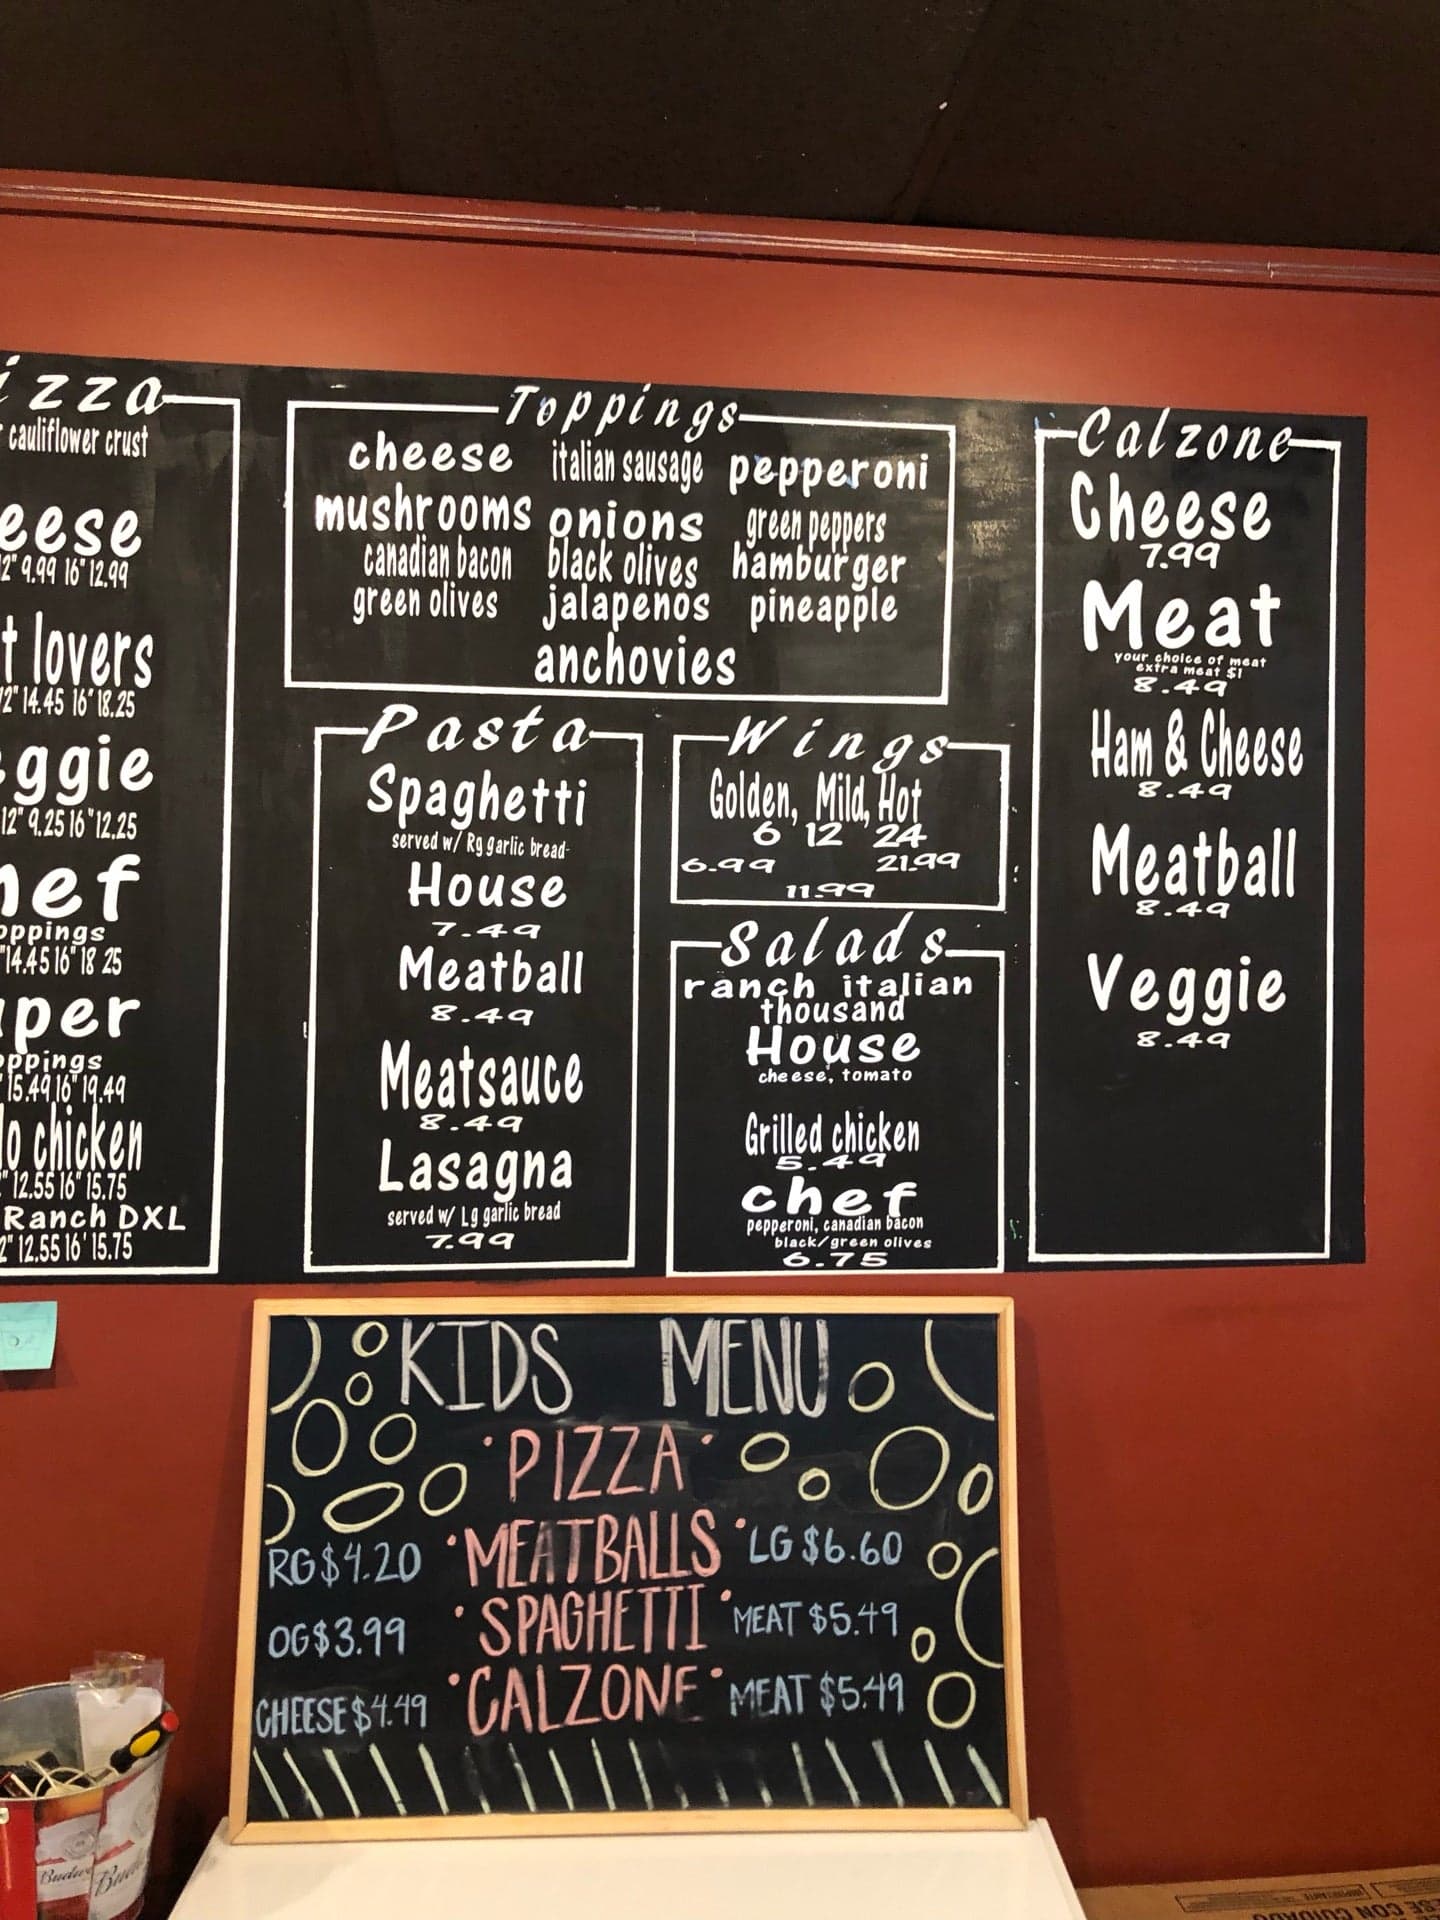 izza
cauliflower crust
eese
12" 9.99 16" 12.99
t lovers
12" 14.45 16" 18.25
ggie
12" 9.25 16" 12.25
hef
oppings
" 14.45 16" 18 25
uper
oppings
" 15.49 16" 19.49
lo chicken
" 12.55 16" 15.75
Ranch DXL
2" 12.55 16' 15.75
Toppings
cheese italian sausage pepperoni
mushrooms onions green peppers
canadian bacon black olives hamburger
green olives jalapenos pineapple
anchovies
Pasta
Spaghetti
served w/ Rg garlic bread
House
7.49
Meatball
8.49
Meatsauce
8.49
Lasagna
served w/ Lg garlic bread
7.99
Wings
Golden, Mild, Hot
6 12 24
6.99 21.99
11.99
Salads
ranch italian
thousand
House
cheese, tomato
Grilled chicken
5.49
chef
pepperoni, canadian bacon
black/green olives
6.75
Calzone
Cheese
7.99
Meat
your choice of meat
extra meat $1
8.49
Ham & Cheese
8.49
Meatball
8.49
Veggie
8.49
KIDS MENU
• PIZZA •
RG $4.20 • MEATBALLS • LG $6.60
OG $3.99 • SPAGHETTI • MEAT $5.49
CHEESE $4.49 • CALZONE • MEAT $5.49
Budw
Bud